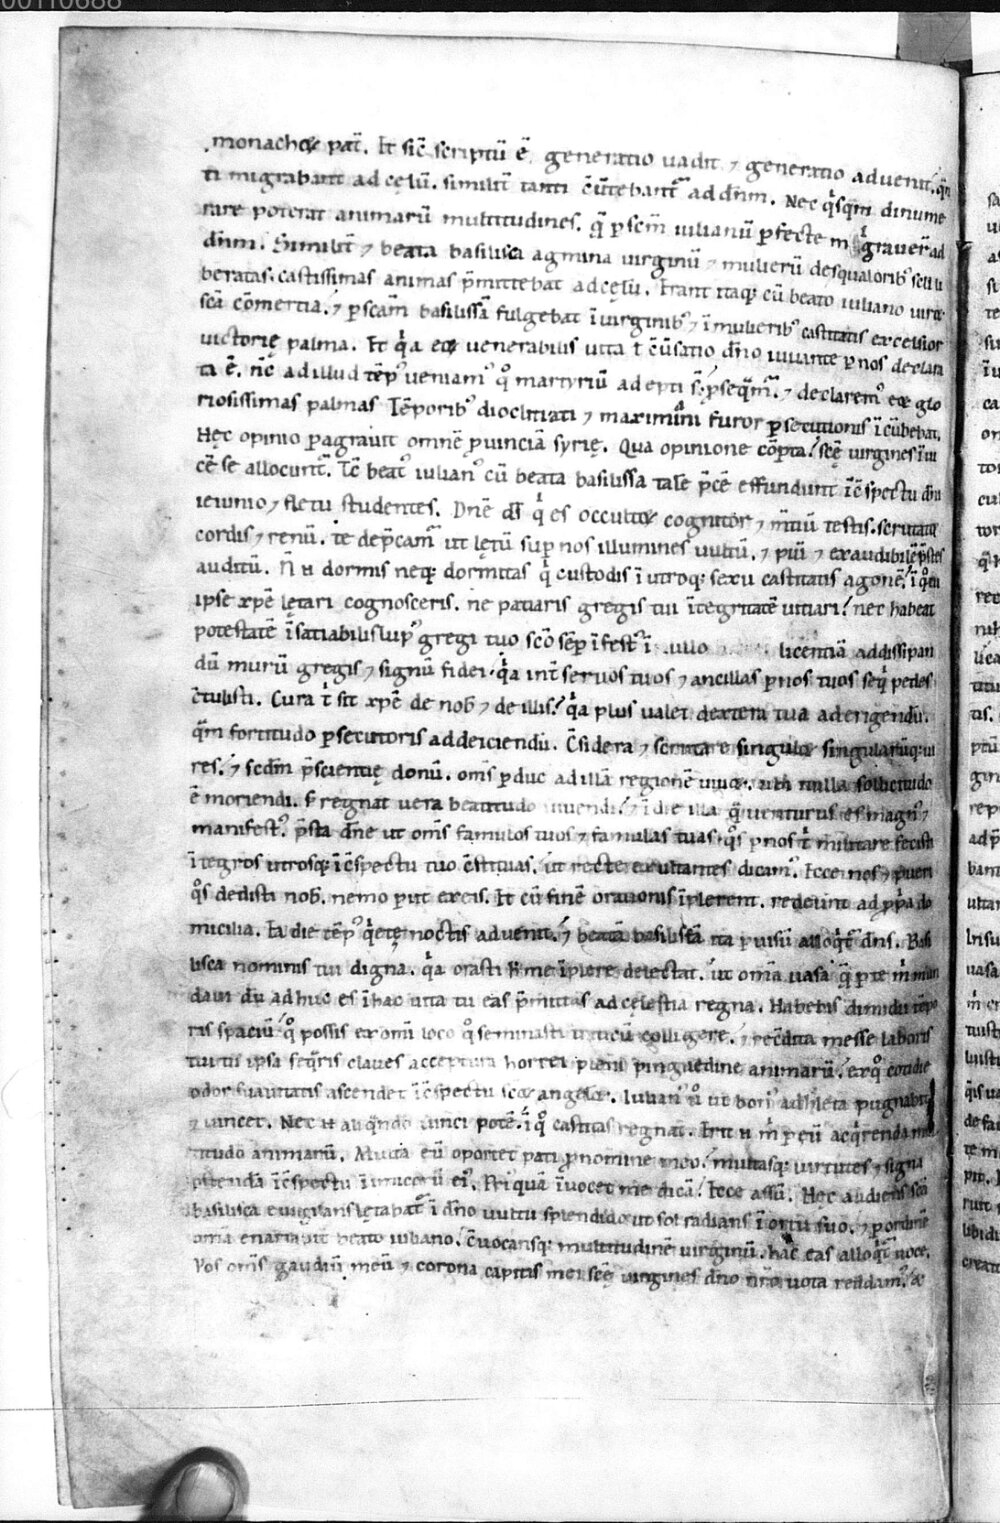 00110688
monachoꝝ pat̄. Et sic̄ scriptū ē. generatio uadit ⁊ generatio aduenit. q̄n
ti migrabant ad cęlū. similit̄ tanti c̄uͥtebant᷑ ad dn̄m. Nec qͥsqm̄ dinume
rare poterat animarū multitudines. q̄ ꝑ scm̄ iulianū ꝑfecte migͣuer̄ ad
dn̄m. Similit̄ ⁊ beata basilisca agmina uirginū ⁊ mulierū de squaloribꝰ sc̄li li
beratas. castissimas animas p̄mittebat ad cęlū. Erant itaqꝫ cū beato iuliano uiro
sc̄a cōmertia. ⁊ ꝑ scām basilissā fulgebat ī uirginibꝰ ⁊ ī mulieribꝰ castitatis excelsior
uictorię palma. Et qͥa eoꝝ uenerabilis uita ł c̄uͥsatio dn̄o iuuante ꝑ nos declara
ta ē. nc̄ ad illud tēpꝰ ueniamꝰ qͦ martyriū adepti s̄. ꝑseq̄m᷑. ⁊ declaremꝰ eoꝝ glo
riosissimas palmas Tēporibꝰ diocletiati ⁊ maximini furor ꝑsecutionis īcūbebat.
Hęc opinio ꝑagrauit omnē ꝓuinciā syrię. Qua opinione cōpta. scē uirgines ī uī
cē se allocunt᷑. Tc̄ beatꝰ iulianꝰ cū beata basilissa talē p̄cē effundunt ī c̄spectu dn̄i
ieiunio ⁊ fletu studentes. Dn̄e ds̄ qͥ es occultoꝝ cognitor ⁊ m̄tiū testis. scrutator
cordis ⁊ renū. te dep̄cam᷑ ut lętū suꝑ nos illumines uultū. ⁊ piū ⁊ exaudibilē p̄stes
auditū. N̄ n̄ dormis neqꝫ dormitas qͥ custodis ī utroqꝫ sexu castitatis agonē. ī qͦ tu
ipse xp̄e lętari cognosceris. ne patiaris gregis tui ītegritatē uitiari. nec habeat
potestatē īsatiabilis lupꝰ gregi tuo scō sēꝑ īfestꝰ ī ullo licentiā ad dissipan
dū murū gregis ⁊ signū fidei. qͥa int̄ seruos tuos ⁊ ancillas ꝑ nos tuos seqͥ pedes
c̄tulisti. Cura tͥ sit xp̄e de nob̄ ⁊ de illis. qͥa plus ualet dextera tua ad erigendū.
qͣm fortitudo ꝑsecutoris ad deiciendū. C̄sidera ⁊ scrutare singuloꝝ singularūqꝫ ui
res. ⁊ scdm̄ p̄scientię donū. om̄s ꝑduc ad illā regionē uiuoꝝ. ubi nulla sollicitudo
ē moriendi. s̄ regnat uera beatitudo uiuendi. ⁊ ī die illa q̄ uenturus es magnꝰ ⁊
manifestꝰ. p̄sta dn̄e ut om̄s famulos tuos ⁊ famulas tuas. qͦs ꝑ nos tͥ militare fecisti
ītegros utrosqꝫ ī c̄spectu tuo c̄stituas. ut recte exultantes dicamꝰ. Ecce nos ⁊ pueri
qͦs dedisti nob̄. nemo ꝑiit ex eis. Et cū finē orationis īplerent. redeunt ad ꝓpͥa do
micilia. Ea die tēpꝰ qͥetę noctis aduenit. ⁊ beatā basilissā ita ꝑ uisū alloqͥt᷑ dn̄s. Basi
lisca nominis tui digna. qͥa orasti h̄ me īplere delectat. ut om̄a uasa q̄ ꝑ te m̄ mun
daui dū adhuc es ī hac uita tu eas p̄mittas ad cęlestia regna. Habebis dimidii tēpo
ris spaciū. qͦ possis ex om̄i loco qͦ seminasti triticū colligere. ⁊ rec̄dita messe laboris
tui tu ipsa seqͣris claues acceptura horrei pleni pinguedine animarū. ex qͦ cotidie
odor suauitatis ascendet ī c̄spectu scōꝝ angeloꝝ. Iulianꝰ ū ut bonꝰ adhleta pugnabit
⁊ uincet. Nec n̄ aliqͣndo uinci potē. ī qͦ castitas regnat. Erit n̄ m̄ ꝑ eū acqͥrenda mul
titudo animarū. Multa eū oportet pati ꝓ nomine meo. multasqꝫ uirtutes ⁊ signa
ostendā ī c̄spectu īimicoꝝ eiꝰ. Priꝰquā īuocet me dicā. Ecce assū. Hęc audiens scā
basilisca euigilans lętabat᷑ ī dn̄o uultu splendido ut sol radians ī ortu suo. ⁊ ꝑ ordinē
om̄a enarrauit beato iuliano. C̄uocansqꝫ multitudinē uirginū. hac eas alloqͥt᷑ uoce.
Vos om̄s gaudiū meū ⁊ corona capitis mei scē uirgines dn̄o nr̄o uota reddamꝰ.